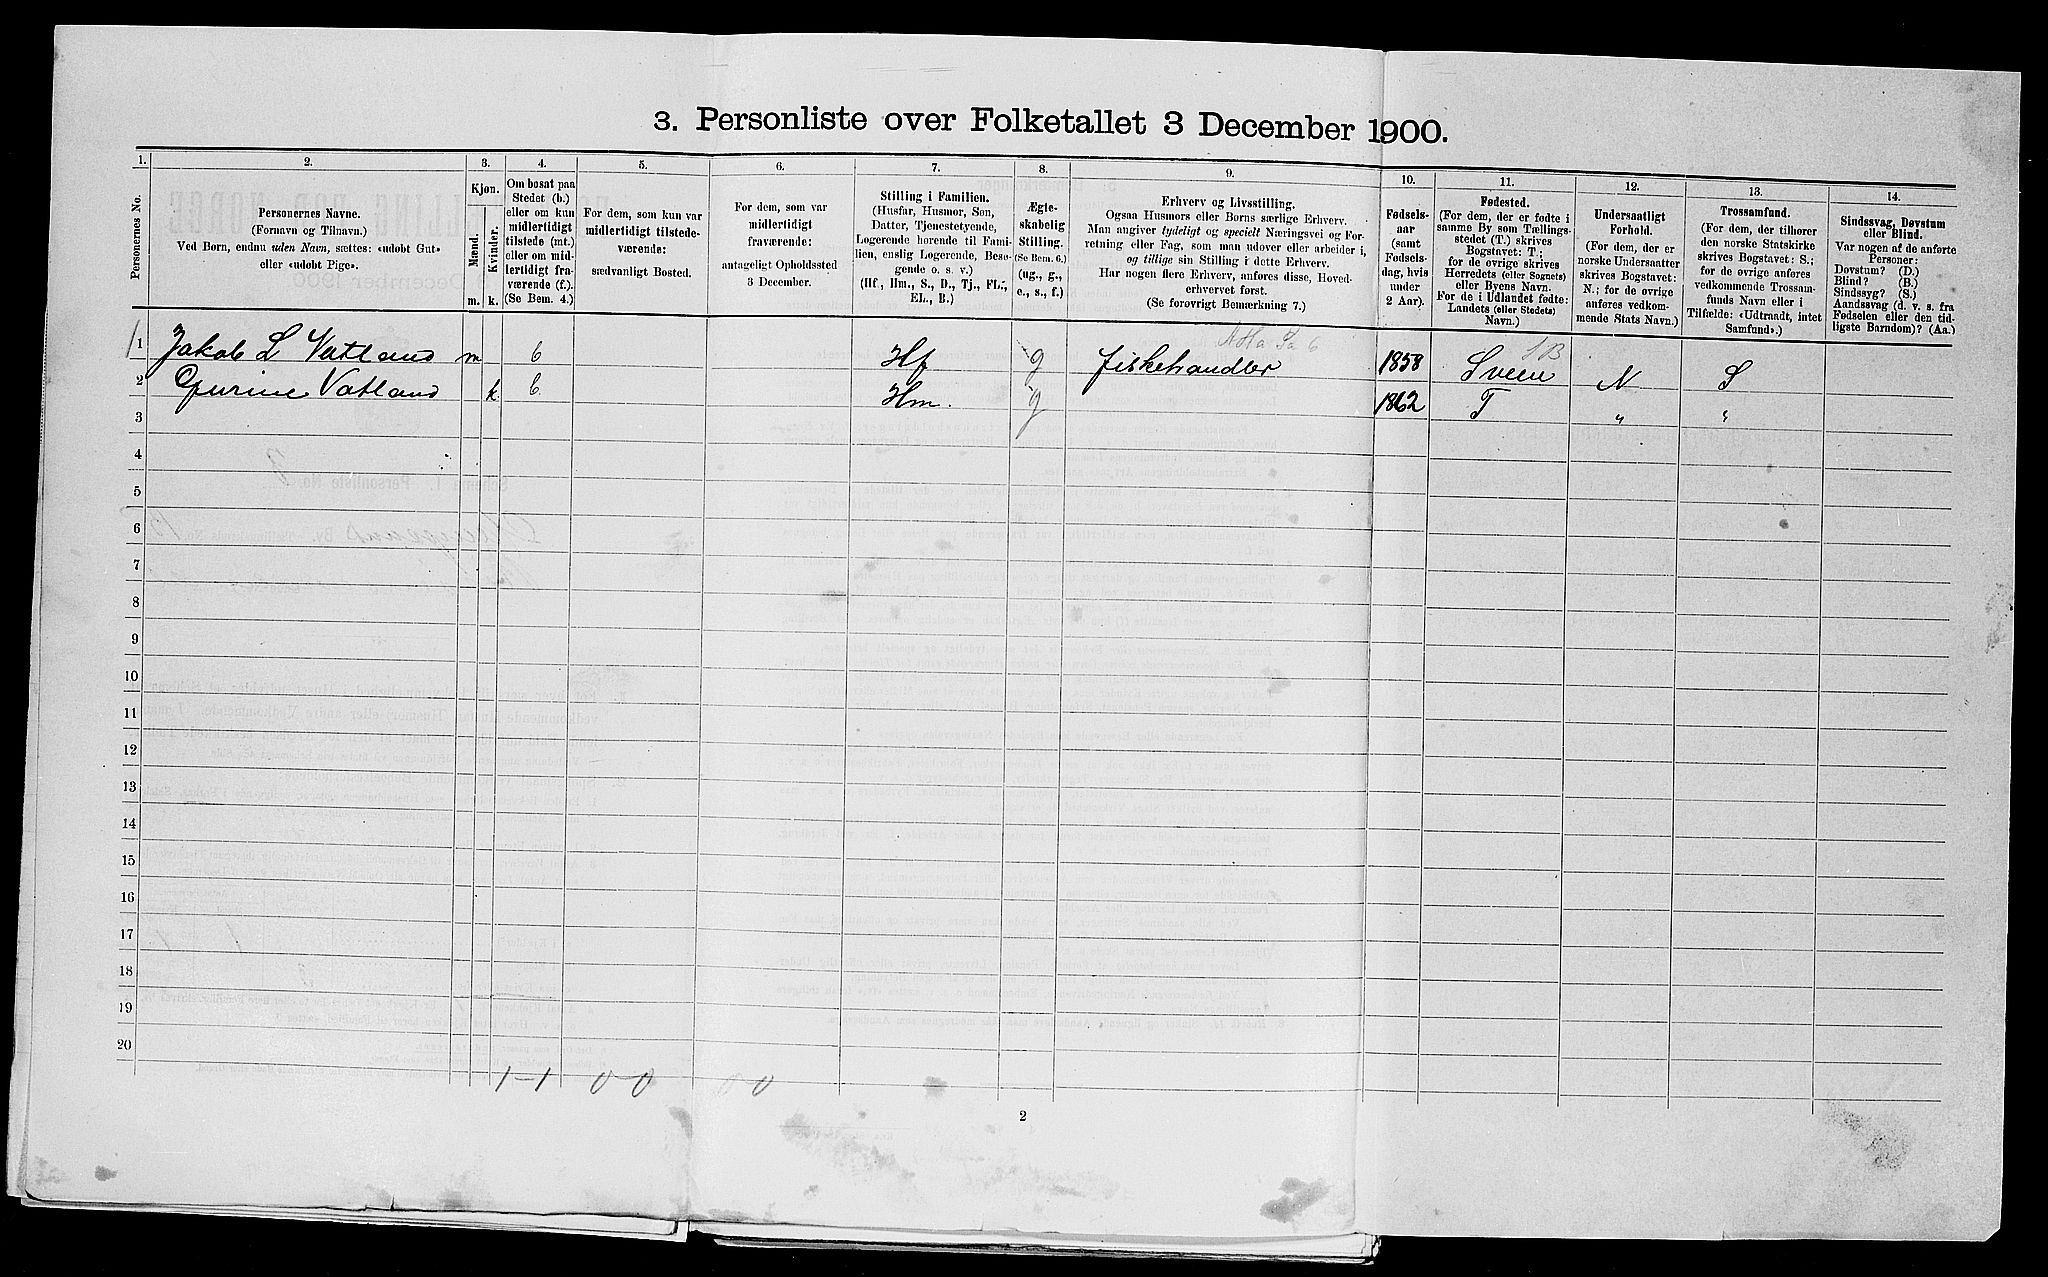 3. Personliste over Folketallet 3 December 1900.
1. 2. 3. 4. 5. 6. 7. 8. 9. 10. 11. 12. 13. 14.
Personernes No.
Personernes Navne.
(Fornavn og Tilnavn.)
Ved Børn, endnu uden Navn, sættes: «udøbt Gut»
eller «udøbt Pige».
Kjøn.
Mænd.
Kvinder.
m. k.
Om bosat paa
Stedet (b.)
eller om kun
midlertidigt
tilstede (mt.)
eller om mid-
lertidigt fra-
værende (f.).
(Se Bem. 4.)
For dem, som kun var
midlertidigt tilstede-
værende:
sædvanligt Bosted.
For dem, som var
midlertidigt
fraværende:
antageligt Opholdssted
3 December.
Stilling i Familien.
(Husfar, Husmor, Søn,
Datter, Tjenestetyende,
Logerende hørende til Fami-
lien, enslig Logerende, Besø-
gende o. s. v.)
(Hf., Hm., S., D., Tj., FL.,
EL., B.)
Ægte-
skabelig
Stilling.
(Se Bem. 6.)
(ug., g.,
e., s., f.)
Erhverv og Livsstilling.
Ogsaa Husmors eller Børns særlige Erhverv.
Man angiver tydeligt og specielt Næringsvei og For-
retning eller Fag, som man udøver eller arbeider i,
og tillige sin Stilling i dette Erhverv.
Har nogen flere Erhverv, anføres disse, Hoved-
erhvervet først.
(Se forøvrigt Bemærkning 7.)
Fødsels-
aar
(samt
Fødsels-
dag, hvis
under
2 Aar).
Fødested.
(For dem, der er fødte i
samme By som Tællings-
stedet (T.) skrives
Bogstavet: T.;
for de øvrige skrives
Herredets (eller Sognets)
eller Byens Navn.
For de i Udlandet fødte:
Landets (eller Stedets)
Navn.)
Undersaatligt
Forhold.
(For dem, der er
norske Undersaatter
skrives Bogstavet:
N.; for de øvrige
anføres vedkom-
mende Stats Navn.)
Trossamfund.
(For dem, der tilhører
den norske Statskirke
skrives Bogstavet: S.;
for de øvrige anføres
vedkommende Trossam-
funds Navn eller i
Tilfælde: «Udtraadt, intet
Samfund».)
Sindssvag, Døvstum
eller Blind.
Var nogen af de anførte
Personer:
Døvstum? (D.)
Blind? (B.)
Sindssyg? (S.)
Aandssvag (d. v. s. fra
Fødselen eller den tid-
ligste Barndom)? (Aa.)
1 Jakob L Vatland m b Hf g fiskehandler 1858 Sveen N S
2 Gurine Vatland k b Hm. g 1862 T „ „
3
4
5
6
7
8
9
10
11
12
13
14
15
16
17
18
19
20
1-1 0-0 0 0
2